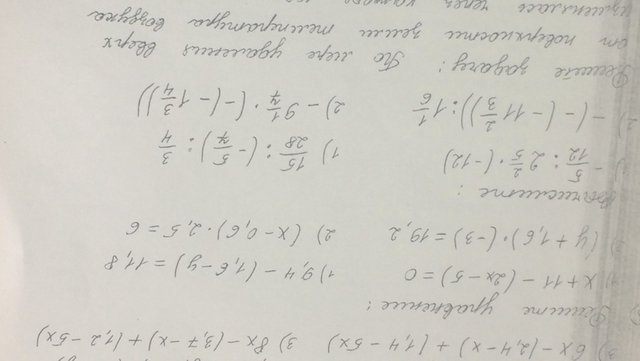 3) 6x-(2,4-x)+(1,4-5x) 3) 8x-(3,7-x)+(1,2-5x)
Решите уравнение:
1) x+11-(2x-5)=0 1) 9,4-(1,6-y)=11,8
2) (y+1,6)·(-3)=19,2 2) (x-0,6)·2,5=6
Вычислите:
) -5/12 : 2 2/5 · (-12) 1) 15/28 : (-5/7) : 3/4
2) -(-(-11 2/3)) : 1 1/6 2) -9 1/7 · (-(-1 3/4))
Решите задачу: По мере удаления вверх
от поверхности земли температура воздуха